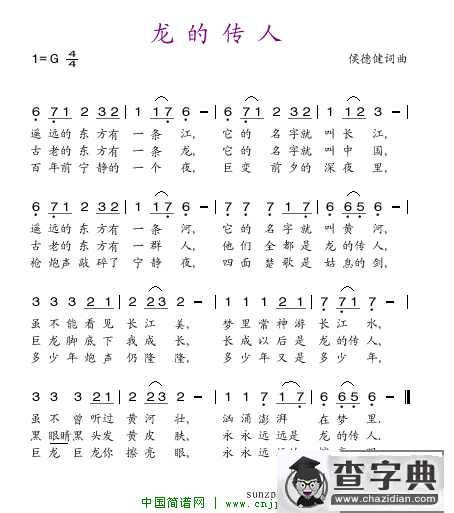 龙的传人
1=G 4/4 侯德健词曲
6 71 2 32 | 1 17 6 - | 6 71 2 32 | 1 17 6 - |
遥远的东方有 一条 江, 它的 名字就 叫长 江,
古老的东方有 一条 龙, 它的 名字就 叫中 国,
百年前宁静的 一个 夜, 巨变 前夕的 深夜 里,
6 71 2 32 | 1 17 6 - | 7 7 7 17 | 6 65 6 - |
遥远的东方有 一条 河, 它的 名字就 叫黄 河,
古老的东方有 一群 人, 他们 全都是 龙的传人,
枪炮声敲碎了 宁静 夜, 四面 楚歌是 姑息的剑,
3 3 3 21 | 2 23 2 - | 1 1 1 21 | 7 71 7 - |
虽不能看见 长江 美, 梦里常神游 长江 水,
巨龙脚底下 我成 长, 长成以后是 龙的传人,
多少年炮声 仍隆 隆, 多少年又是 多少 年,
3 3 3 21 | 2 23 2 - | 1 2 3 17 | 6 - - - ‖
虽不 曾听过 黄河 壮, 汹涌澎湃 在梦 里.
黑眼睛黑头发 黄皮 肤, 永永远远是 龙的传人.
巨龙巨龙你 擦亮 眼, 永永远远的
sunzp
中国简谱网 www.cnjp
查字典
www.chazidian.com